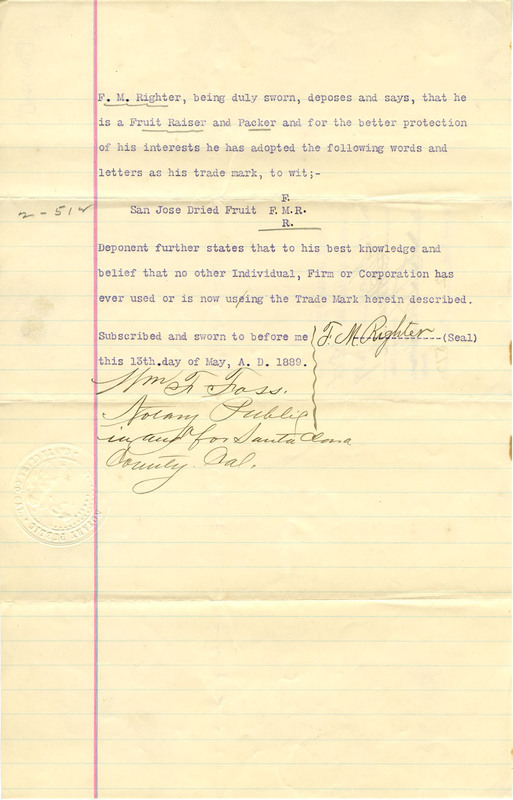 F. M. Righter, being duly sworn, deposes and says, that he
is a Fruit Raiser and Packer and for the better protection
of his interests he has adopted the following words and
letters as his trade mark, to wit;-
F.
2-512 San Jose Dried Fruit F.M.R.
R.
Deponent further states that to his best knowledge and
belief that no other Individual, Firm or Corporation has
ever used or is now using the Trade Mark herein described.
Subscribed and sworn to before me F. M. Righter (Seal)
this 13th.day of May, A. D. 1889.
Wm F Foss.
Notary Public
in and for Santa Clara
County. Cal.
NOTARY PUBLIC